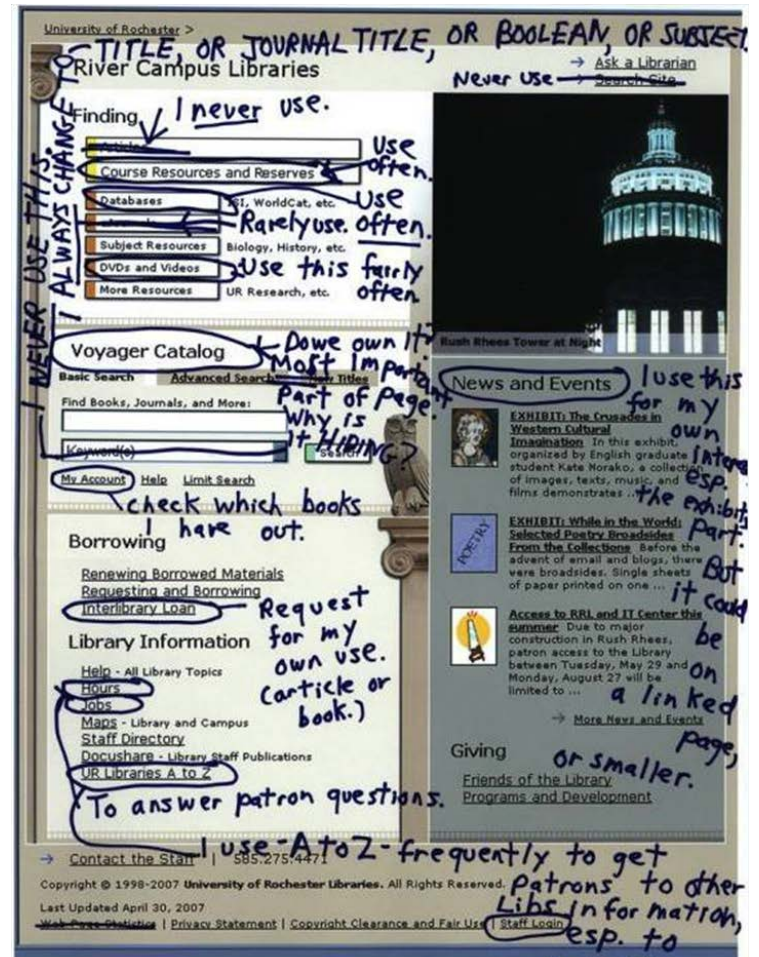 University of Rochester >
TITLE, OR JOURNAL TITLE, OR BOOLEAN, OR SUBJECT.
River Campus Libraries
→ Ask a Librarian
Never use → Search Site
Finding
I never use.
Articles
Use often.
Course Resources and Reserves
Databases
ISI, WorldCat, etc.
Use often.
Rarely use.
Subject Resources
Biology, History, etc.
DVDs and Videos
Use this fairly often.
More Resources
UR Research, etc.
I NEVER USE THIS.
I ALWAYS CHANGE TO
Rush Rhees Tower at Night
Voyager Catalog
Do we own it?
Most important
Part of Page.
Why is
it HIDING?
Basic Search
Advanced Search
New Titles
Find Books, Journals, and More:
Keyword(s)
Search
My Account Help Limit Search
check which books
I have out.
Borrowing
Renewing Borrowed Materials
Requesting and Borrowing
Interlibrary Loan
Request
for my
own use.
(article or
book.)
Library Information
Help - All Library Topics
Hours
Jobs
Maps - Library and Campus
Staff Directory
Docushare - Library Staff Publications
UR Libraries A to Z
To answer patron questions.
News and Events
I use this
for my
own
esp.
the exhibits
part.
But
it could
be
on
a linked
page,
or smaller.
EXHIBIT: The Crusades in
Western Cultural
Imagination In this exhibit,
organized by English graduate
student Kate Norako, a collection
of images, texts, music, and
films demonstrates ...
POETRY
EXHIBIT: While in the World:
Selected Poetry Broadsides
From the Collections Before the
advent of email and blogs, there
were broadsides. Single sheets
of paper printed on one ...
Access to RRL and IT Center this
summer Due to major
construction in Rush Rhees,
patron access to the Library
between Tuesday, May 29 and
Monday, August 27 will be
limited to ...
→ More News and Events
Giving
Friends of the Library
Programs and Development
I use - A to Z - frequently to get
patrons to other
Libs information,
esp. to
→ Contact the Staff | 585.275.4471
Copyright © 1998-2007 University of Rochester Libraries. All Rights Reserved.
Last Updated April 30, 2007
Web Page Statistics | Privacy Statement | Copyright Clearance and Fair Use | Staff Login